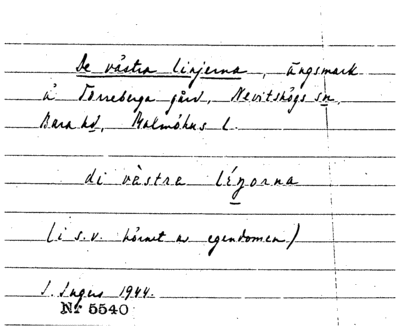 De västra linjerna, ängsmark
å Torreberga gård, Nevitshögs sn,
Bara hd, Malmöhus l.
di vèstra léŋorna
(i s.v. hörnet av egendomen)
I. Ingers 1944.
Nr 5540